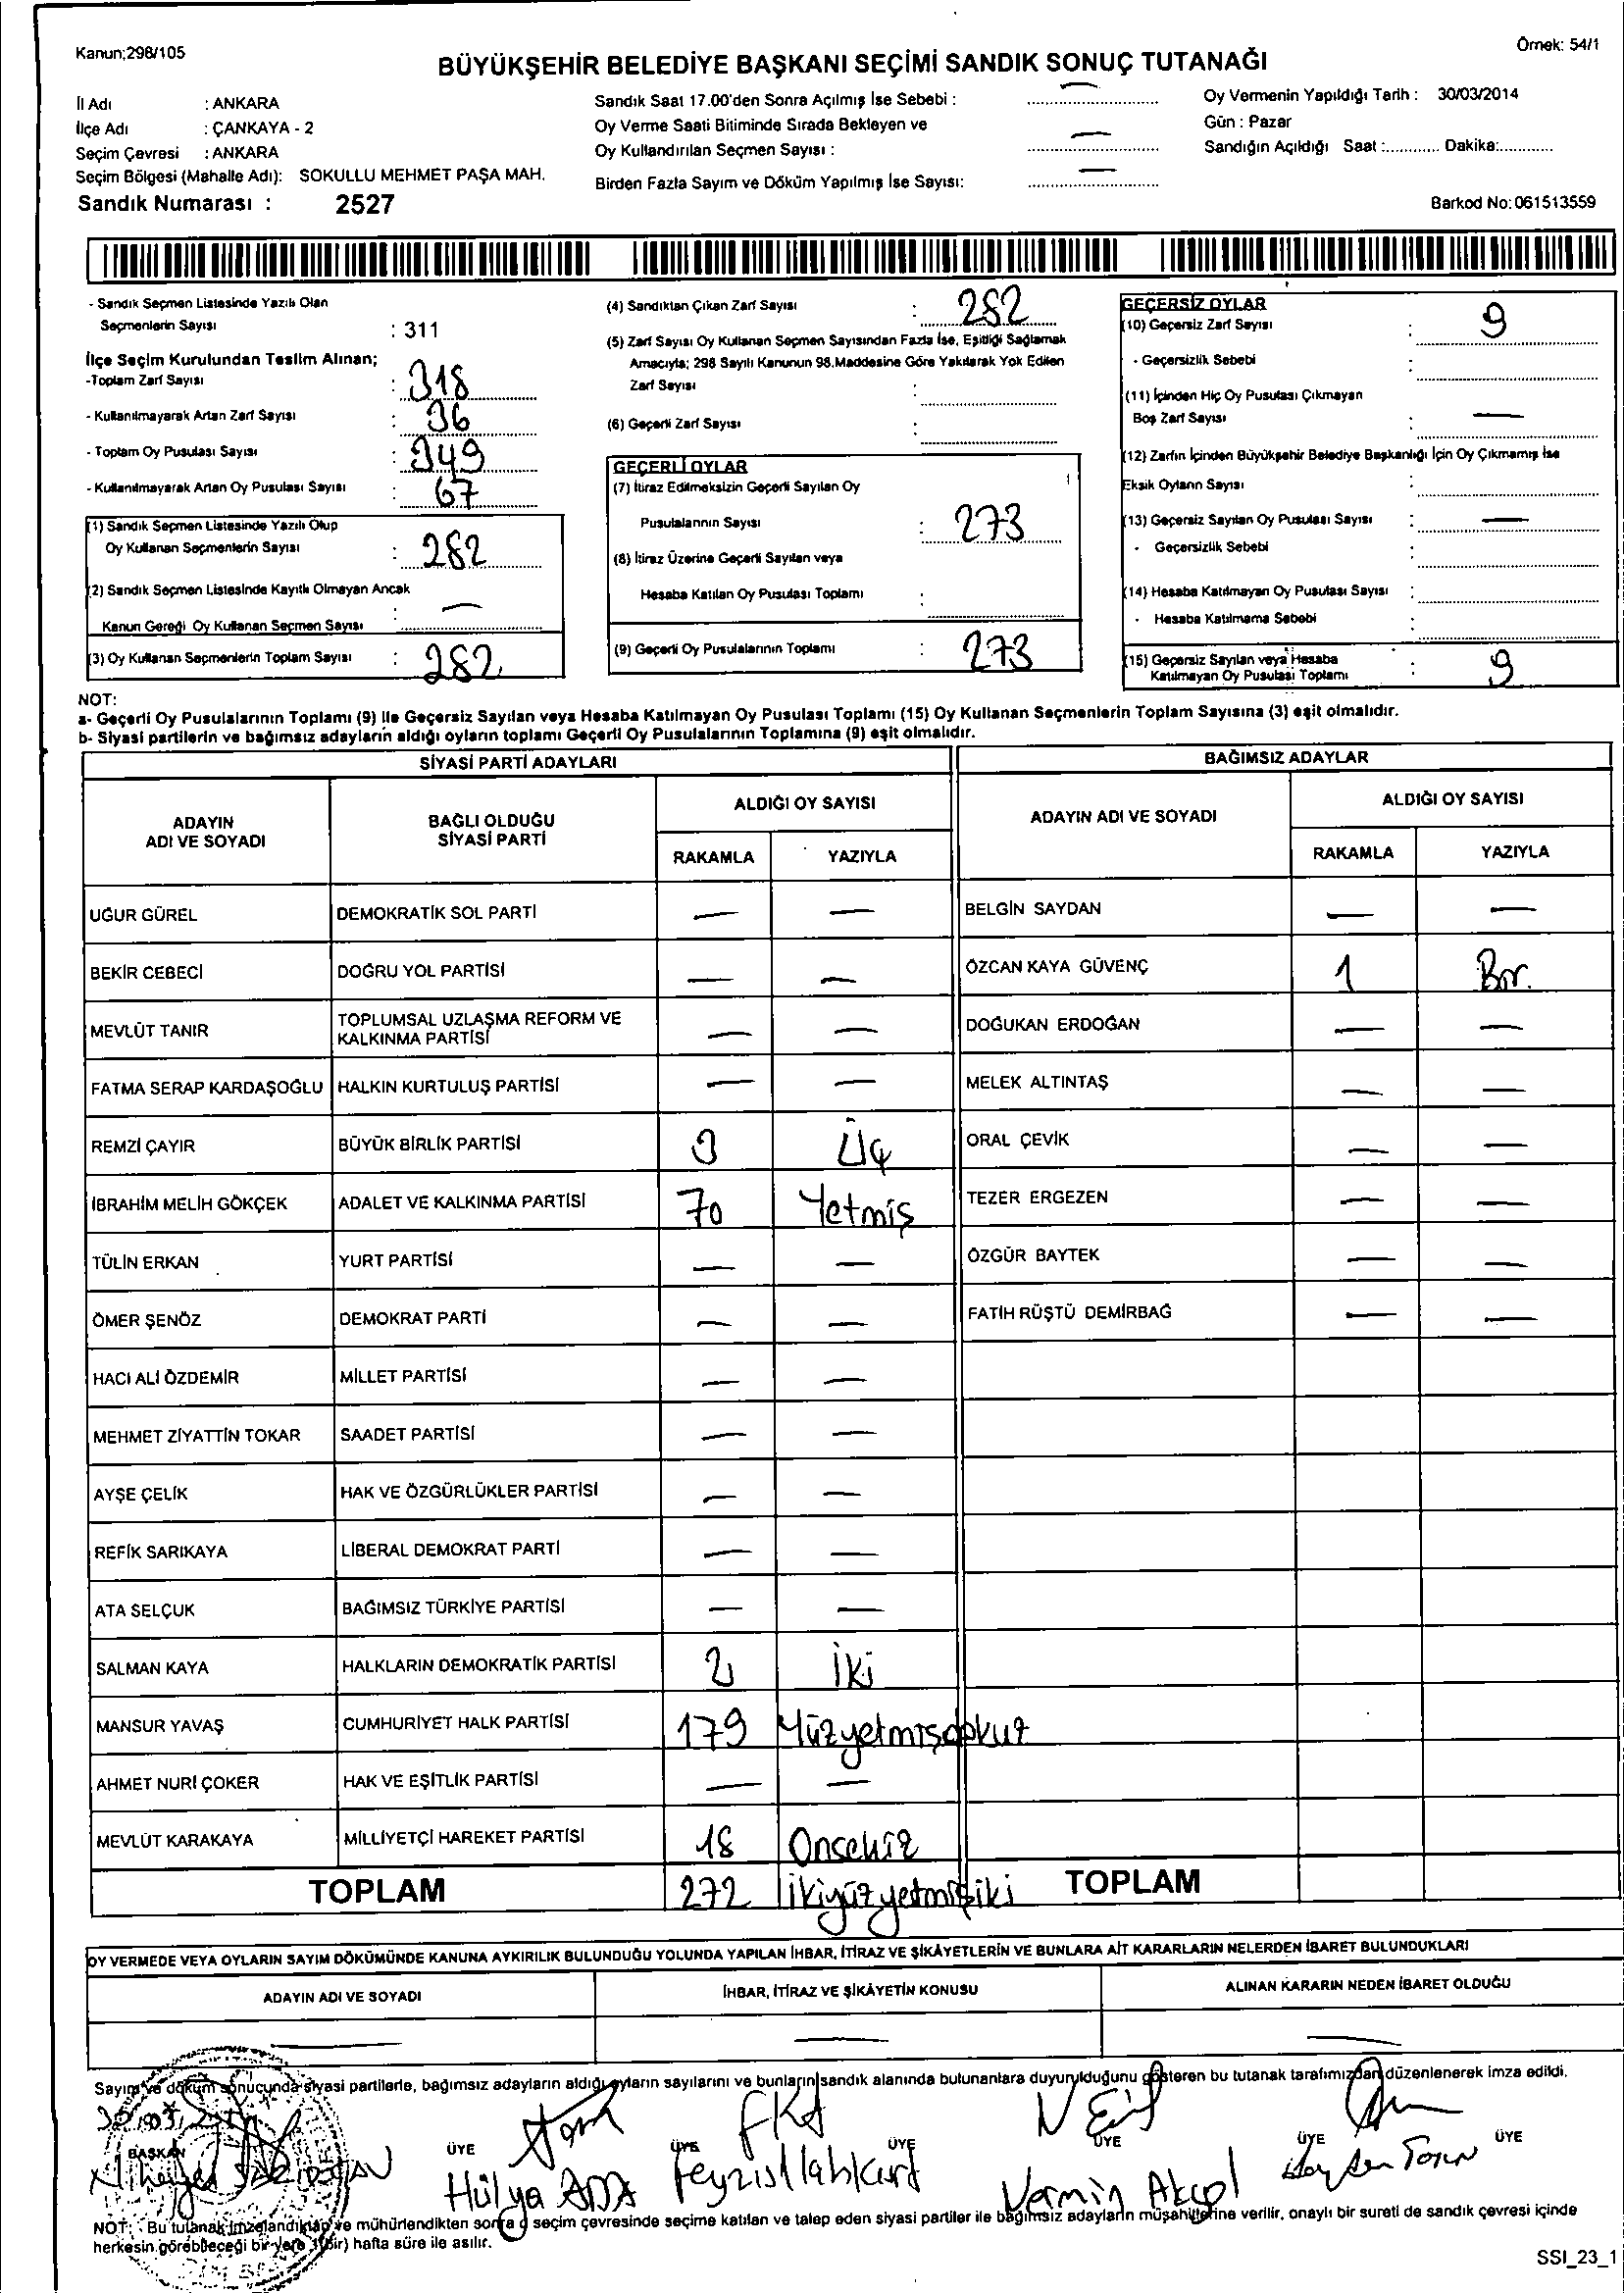 Kanun;298/105
Örnek: 54/1
BÜYÜKŞEHİR BELEDİYE BAŞKANI SEÇİMİ SANDIK SONUÇ TUTANAĞI
İl Adı : ANKARA
İlçe Adı : ÇANKAYA - 2
Seçim Çevresi : ANKARA
Seçim Bölgesi (Mahalle Adı): SOKULLU MEHMET PAŞA MAH.
Sandık Numarası : 2527
Sandık Saat 17.00'den Sonra Açılmış İse Sebebi : —
Oy Verme Saati Bitiminde Sırada Bekleyen ve
Oy Kullandırılan Seçmen Sayısı : —
Birden Fazla Sayım ve Döküm Yapılmış İse Sayısı: —
Oy Vermenin Yapıldığı Tarih : 30/03/2014
Gün : Pazar
Sandığın Açıldığı Saat :............ Dakika:............
Barkod No: 061513559
- Sandık Seçmen Listesinde Yazılı Olan
Seçmenlerin Sayısı : 311
İlçe Seçim Kurulundan Teslim Alınan;
-Toplam Zarf Sayısı : 318
- Kullanılmayarak Artan Zarf Sayısı : 36
- Toplam Oy Pusulası Sayısı : 349
- Kullanılmayarak Artan Oy Pusulası Sayısı : 67
(1) Sandık Seçmen Listesinde Yazılı Olup
Oy Kullanan Seçmenlerin Sayısı : 282
(2) Sandık Seçmen Listesinde Kayıtlı Olmayan Ancak
Kanun Gereği Oy Kullanan Seçmen Sayısı : —
(3) Oy Kullanan Seçmenlerin Toplam Sayısı : 282
(4) Sandıktan Çıkan Zarf Sayısı : 282
(5) Zarf Sayısı Oy Kullanan Seçmen Sayısından Fazla İse, Eşitliği Sağlamak
Amacıyla; 298 Sayılı Kanunun 98.Maddesine Göre Yakılarak Yok Edilen
Zarf Sayısı :
(6) Geçerli Zarf Sayısı :
GEÇERLİ OYLAR
(7) İtiraz Edilmeksizin Geçerli Sayılan Oy
Pusulalarının Sayısı : 273
(8) İtiraz Üzerine Geçerli Sayılan veya
Hesaba Katılan Oy Pusulası Toplamı :
(9) Geçerli Oy Pusulalarının Toplamı : 273
GEÇERSİZ OYLAR
(10) Geçersiz Zarf Sayısı : 9
- Geçersizlik Sebebi :
(11) İçinden Hiç Oy Pusulası Çıkmayan
Boş Zarf Sayısı : —
(12) Zarfın İçinden Büyükşehir Belediye Başkanlığı İçin Oy Çıkmamış İse
Eksik Oyların Sayısı :
(13) Geçersiz Sayılan Oy Pusulası Sayısı : —
- Geçersizlik Sebebi :
(14) Hesaba Katılmayan Oy Pusulası Sayısı :
- Hesaba Katılmama Sebebi :
(15) Geçersiz Sayılan veya Hesaba
Katılmayan Oy Pusulası Toplamı : 9
NOT:
a- Geçerli Oy Pusulalarının Toplamı (9) ile Geçersiz Sayılan veya Hesaba Katılmayan Oy Pusulası Toplamı (15) Oy Kullanan Seçmenlerin Toplam Sayısına (3) eşit olmalıdır.
b- Siyasi partilerin ve bağımsız adayların aldığı oyların toplamı Geçerli Oy Pusulalarının Toplamına (9) eşit olmalıdır.
SİYASİ PARTİ ADAYLARI
ADAYIN ADI VE SOYADI
BAĞLI OLDUĞU SİYASİ PARTİ
ALDIĞI OY SAYISI
RAKAMLA YAZIYLA
UĞUR GÜREL DEMOKRATİK SOL PARTİ — —
BEKİR CEBECİ DOĞRU YOL PARTİSİ — —
MEVLÜT TANIR TOPLUMSAL UZLAŞMA REFORM VE KALKINMA PARTİSİ — —
FATMA SERAP KARDAŞOĞLU HALKIN KURTULUŞ PARTİSİ — —
REMZİ ÇAYIR BÜYÜK BİRLİK PARTİSİ 3 Üç
İBRAHİM MELİH GÖKÇEK ADALET VE KALKINMA PARTİSİ 70 Yetmiş
TÜLİN ERKAN YURT PARTİSİ — —
ÖMER ŞENÖZ DEMOKRAT PARTİ — —
HACI ALİ ÖZDEMİR MİLLET PARTİSİ — —
MEHMET ZİYATTİN TOKAR SAADET PARTİSİ — —
AYŞE ÇELİK HAK VE ÖZGÜRLÜKLER PARTİSİ — —
REFİK SARIKAYA LİBERAL DEMOKRAT PARTİ — —
ATA SELÇUK BAĞIMSIZ TÜRKİYE PARTİSİ — —
SALMAN KAYA HALKLARIN DEMOKRATİK PARTİSİ 2 İki
MANSUR YAVAŞ CUMHURİYET HALK PARTİSİ 179 Yüzyetmışdokuz
AHMET NURİ ÇOKER HAK VE EŞİTLİK PARTİSİ — —
MEVLÜT KARAKAYA MİLLİYETÇİ HAREKET PARTİSİ 18 Onsekiz
TOPLAM 272 İkiyüzyetmişiki
BAĞIMSIZ ADAYLAR
ADAYIN ADI VE SOYADI
ALDIĞI OY SAYISI
RAKAMLA YAZIYLA
BELGİN SAYDAN — —
ÖZCAN KAYA GÜVENÇ 1 Bir.
DOĞUKAN ERDOĞAN — —
MELEK ALTINTAŞ — —
ORAL ÇEVİK — —
TEZER ERGEZEN — —
ÖZGÜR BAYTEK — —
FATİH RÜŞTÜ DEMİRBAĞ — —
TOPLAM
OY VERMEDE VEYA OYLARIN SAYIM DÖKÜMÜNDE KANUNA AYKIRILIK BULUNDUĞU YOLUNDA YAPILAN İHBAR, İTİRAZ VE ŞİKÂYETLERİN VE BUNLARA AİT KARARLARIN NELERDEN İBARET BULUNDUKLARI
ADAYIN ADI VE SOYADI İHBAR, İTİRAZ VE ŞİKÂYETİN KONUSU ALINAN KARARIN NEDEN İBARET OLDUĞU
— — —
Sayım ve döküm sonucunda siyasi partilerle, bağımsız adayların aldığı oyların sayılarını ve bunların sandık alanında bulunanlara duyurulduğunu gösteren bu tutanak tarafımızdan düzenlenerek imza edildi.
BAŞKAN ÜYE ÜYE ÜYE ÜYE ÜYE ÜYE
Hülya ADA Feyzullah Kurt Nermin Akçol
NOT: Bu tutanak imzalandıktan ve mühürlendikten sonra o seçim çevresinde seçime katılan ve talep eden siyasi partiler ile bağımsız adayların müşahitlerine verilir, onaylı bir sureti de sandık çevresi içinde
herkesin görebileceği bir yere 1(bir) hafta süre ile asılır.
SSI_23_1